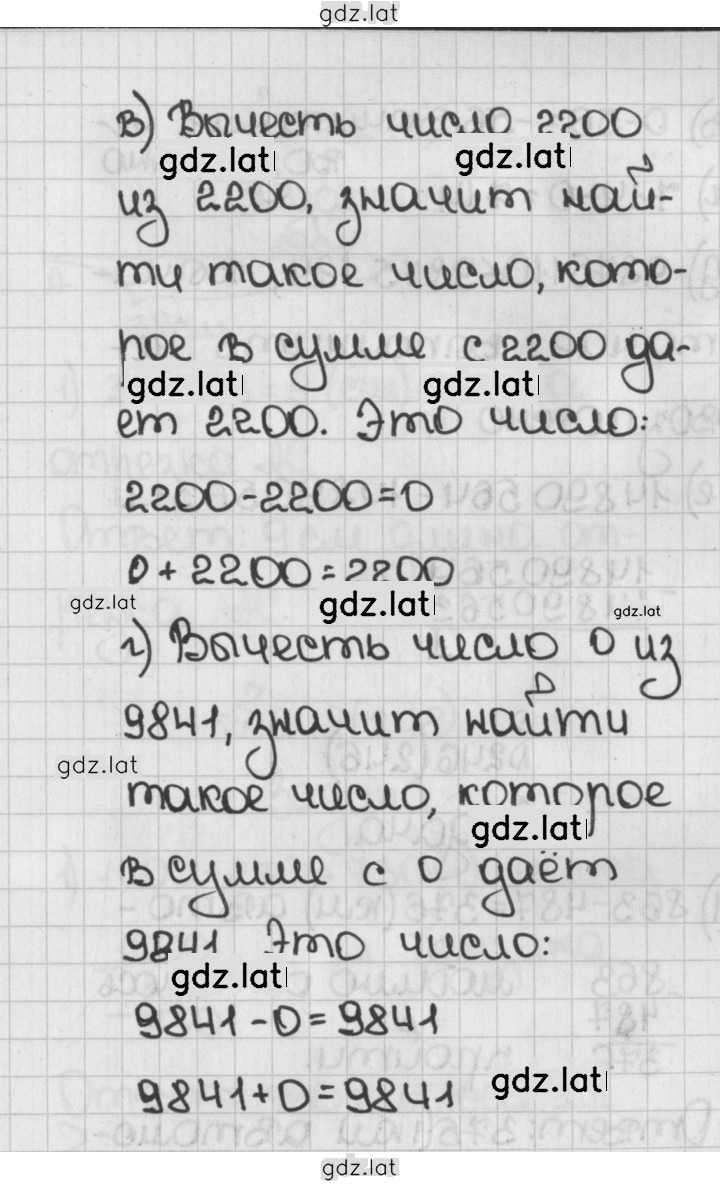 gdz.lat
в) Вычесть число 2200
gdz.lat gdz.lat
из 2200, значит най-
ти такое число, кото-
рое в сумме с 2200 да-
gdz.lat gdz.lat
ет 2200. Это число:
2200-2200=0
0+2200=2200
gdz.lat gdz.lat gdz.lat
г) Вычесть число 0 из
9841, значит найти
gdz.lat
такое число, которое
gdz.lat
в сумме с 0 даёт
9841 Это число:
gdz.lat
9841-0=9841
9841+0=9841
gdz.lat
gdz.lat